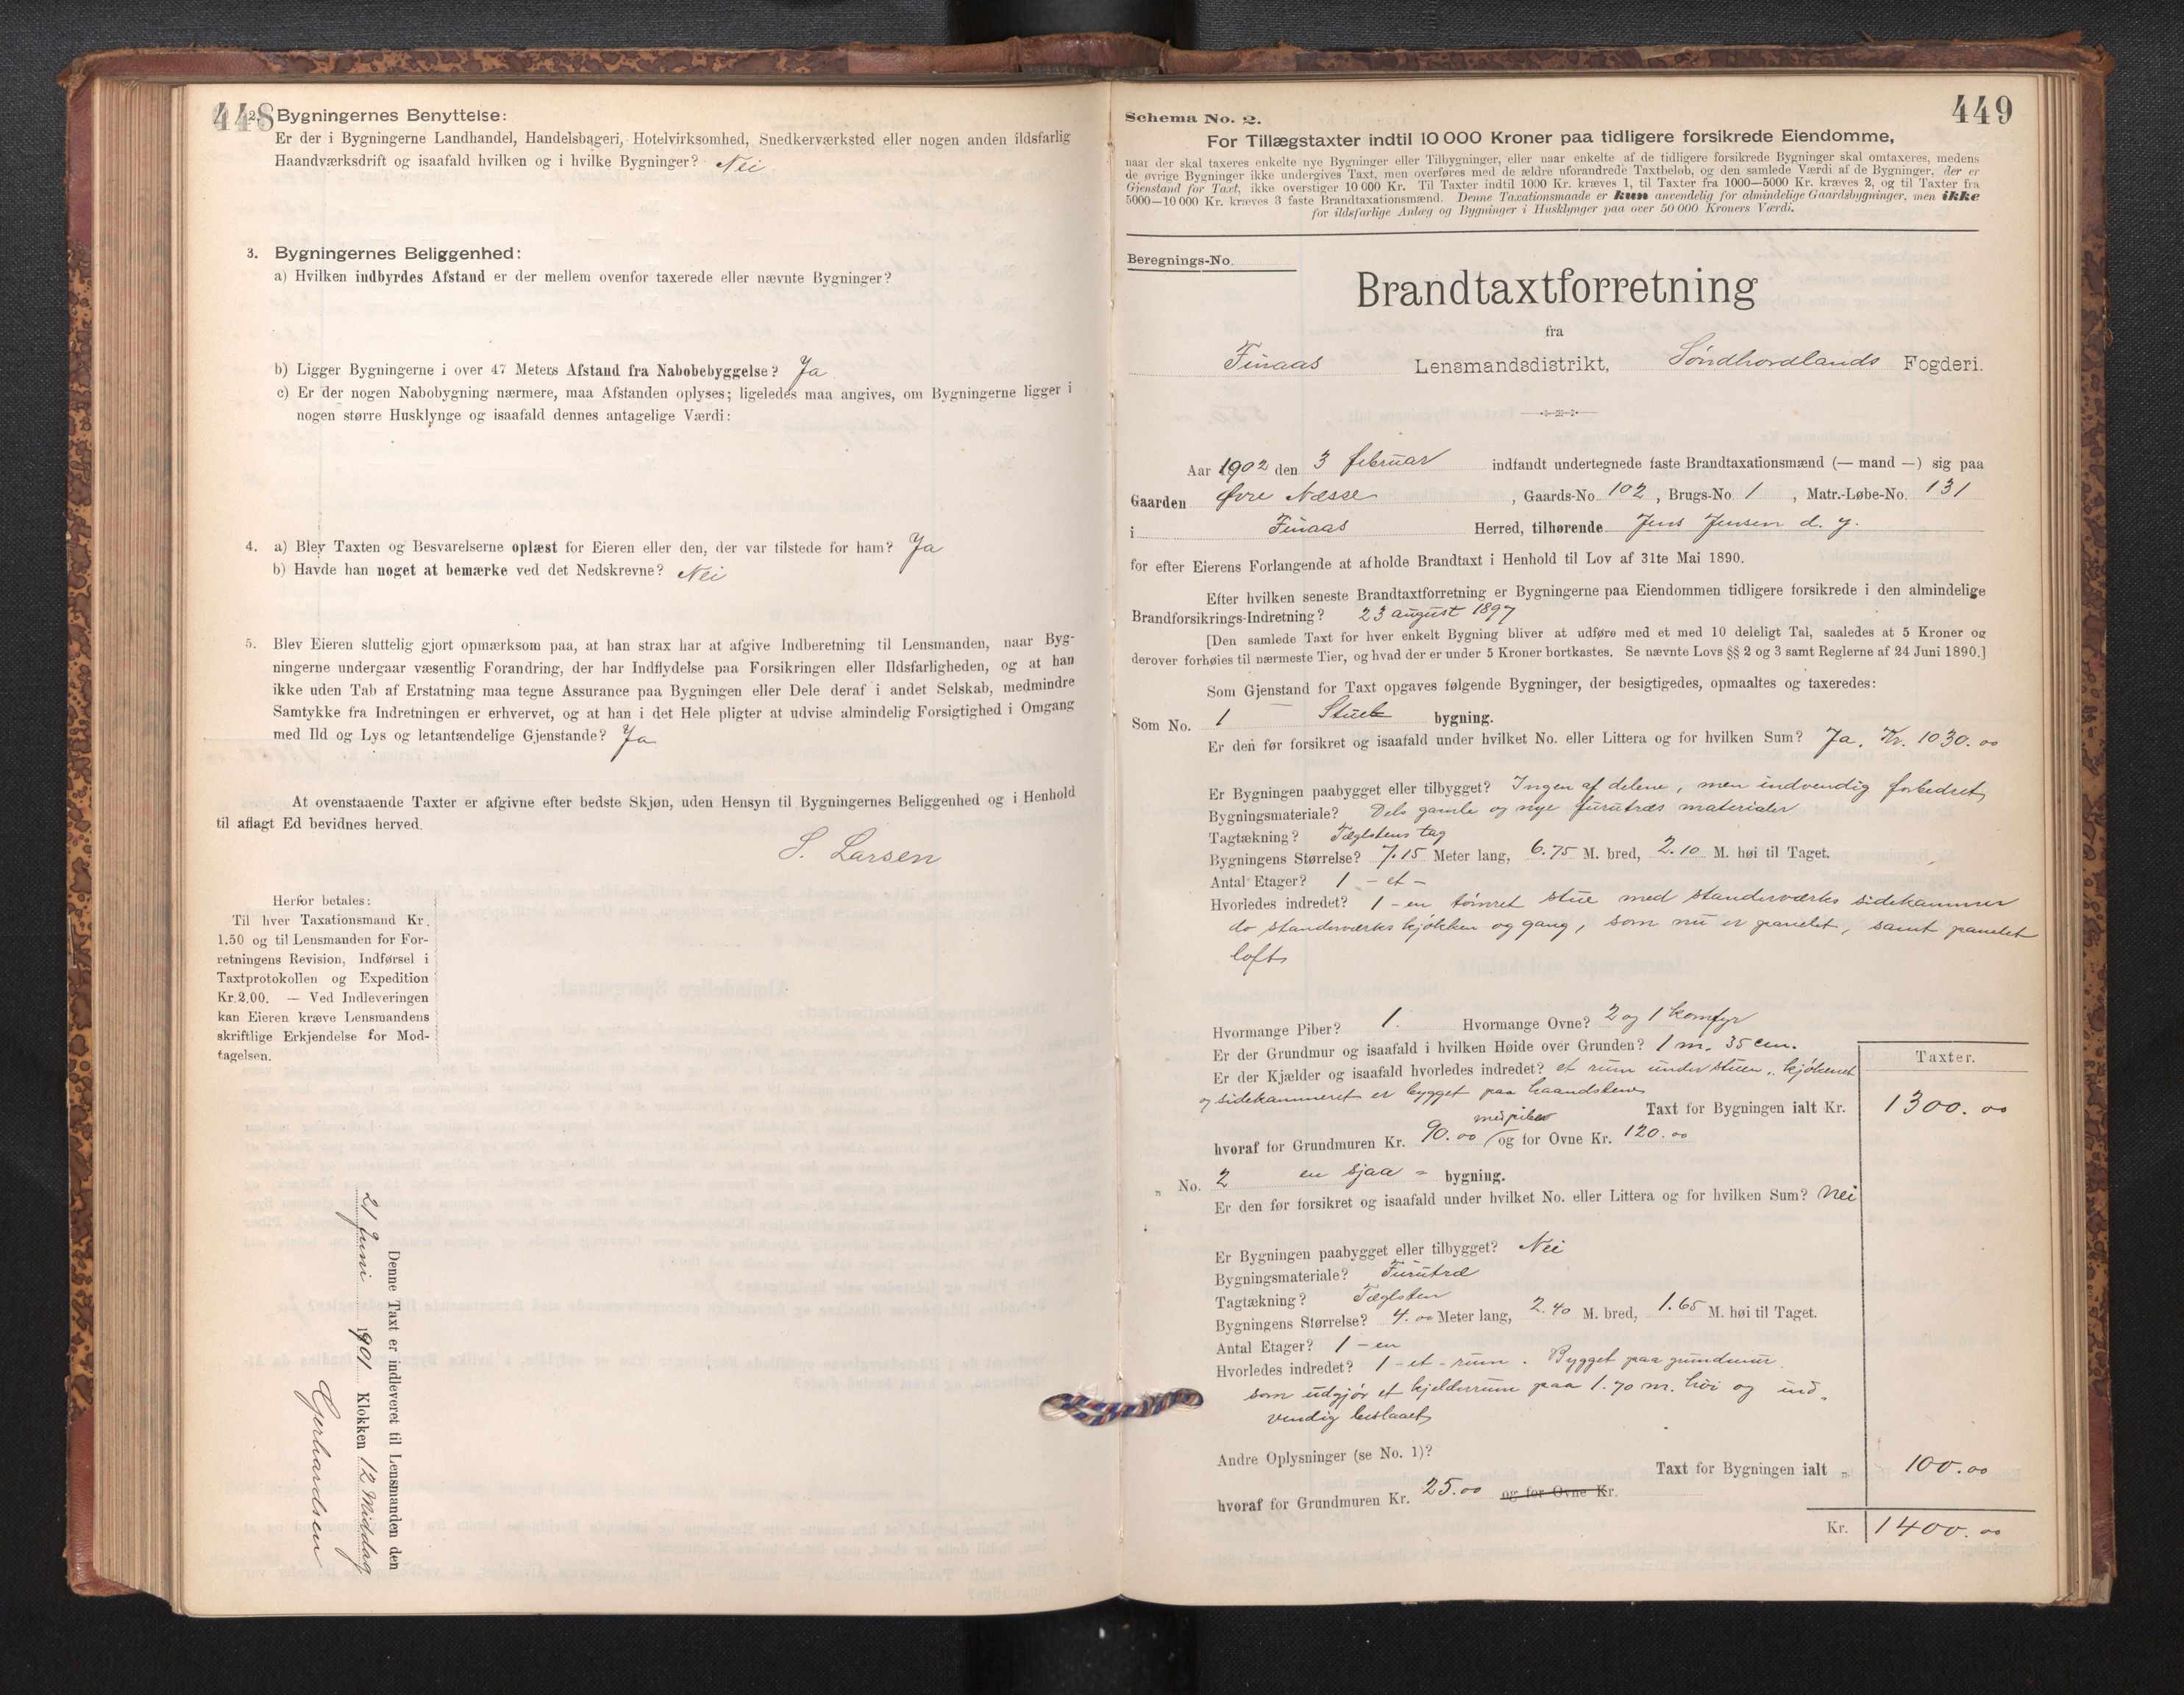 448
2. Bygningernes Benyttelse:
Er der i Bygningerne Landhandel, Handelsbageri, Hotelvirksomhed, Snedkerværksted eller nogen anden ildsfarlig
Haandværksdrift og isaafald hvilken og i hvilke Bygninger? Nei
3. Bygningernes Beliggenhed:
a) Hvilken indbyrdes Afstand er der mellem ovenfor taxerede eller nævnte Bygninger?
b) Ligger Bygningerne i over 47 Meters Afstand fra Nabobebyggelse? Ja
c) Er der nogen Nabobygning nærmere, maa Afstanden oplyses; ligeledes maa angives, om Bygningerne ligger i
nogen større Husklynge og isaafald dennes antagelige Værdi:
4. a) Blev Taxten og Besvarelserne oplæst for Eieren eller den, der var tilstede for ham? Ja
b) Havde han noget at bemærke ved det Nedskrevne? Nei
5. Blev Eieren sluttelig gjort opmærksom paa, at han strax har at afgive Indberetning til Lensmanden, naar Byg-
ningerne undergaar væsentlig Forandring, der har Indflydelse paa Forsikringen eller Ildsfarligheden, og at han
ikke uden Tab af Erstatning maa tegne Assurance paa Bygningen eller Dele deraf i andet Selskab, medmindre
Samtykke fra Indretningen er erhvervet, og at han i det Hele pligter at udvise almindelig Forsigtighed i Omgang
med Ild og Lys og letantændelige Gjenstande? Ja
At ovenstaaende Taxter er afgivne efter bedste Skjøn, uden Hensyn til Bygningernes Beliggenhed og i Henhold
til aflagt Ed bevidnes herved.
S. Larsen
Herfor betales:
Til hver Taxationsmand Kr.
1.50 og til Lensmanden for For-
retningens Revision, Indførsel i
Taxtprotokollen og Expedition
Kr. 2.00. — Ved Indleveringen
kan Eieren kræve Lensmandens
skriftlige Erkjendelse for Mod-
tagelsen.
Denne Taxt er indleveret til Lensmanden den
21 Juni 1901 Klokken 12 Middag
Gerhardsen
449
Schema No. 2.
For Tillægstaxter indtil 10 000 Kroner paa tidligere forsikrede Eiendomme,
naar der skal taxeres enkelte nye Bygninger eller Tilbygninger, eller naar enkelte af de tidligere forsikrede Bygninger skal omtaxeres, medens
de øvrige Bygninger ikke undergives Taxt, men overføres med de ældre uforandrede Taxtbeløb, og den samlede Værdi af de Bygninger, der er
Gjenstand for Taxt, ikke overstiger 10 000 Kr. Til Taxter indtil 1000 Kr. kræves 1, til Taxter fra 1000—5000 Kr. kræves 2, og til Taxter fra
5000—10 000 Kr. kræves 3 faste Brandtaxationsmænd. Denne Taxationsmaade er kun anvendelig for almindelige Gaardsbygninger, men ikke
for ildsfarlige Anlæg og Bygninger i Husklynger paa over 50 000 Kroners Værdi.
Beregnings-No.
Brandtaxtforretning
fra
Finaas Lensmandsdistrikt, Søndhordlands Fogderi.
Aar 1902 den 3 februar indfandt undertegnede faste Brandtaxationsmænd (— mand —) sig paa
Gaarden Øvre Næsse, Gaards-No. 102, Brugs-No. 1, Matr.-Løbe-No. 131
i Finaas Herred, tilhørende Jens Jensen d. y.
for efter Eierens Forlangende at afholde Brandtaxt i Henhold til Lov af 31te Mai 1890.
Efter hvilken seneste Brandtaxtforretning er Bygningerne paa Eiendommen tidligere forsikrede i den almindelige
Brandforsikrings-Indretning? 23 august 1897
[Den samlede Taxt for hver enkelt Bygning bliver at udføre med et med 10 deleligt Tal, saaledes at 5 Kroner og
derover forhøies til nærmeste Tier, og hvad der er under 5 Kroner bortkastes. Se nævnte Lovs §§ 2 og 3 samt Reglerne af 24 Juni 1890.]
Som Gjenstand for Taxt opgaves følgende Bygninger, der besigtigedes, opmaaltes og taxeredes:
Som No. 1 Stue bygning.
Er den før forsikret og isaafald under hvilket No. eller Littera og for hvilken Sum? Ja. Kr. 1030.00
Er Bygningen paabygget eller tilbygget? Ingen af delene, men indvendig forbedret
Bygningsmateriale? Dels gamle og nye furutræs materialer
Tagtækning? Tæglstens tag
Bygningens Størrelse? 7.15 Meter lang, 6.75 M. bred, 2.10 M. høi til Taget.
Antal Etager? 1 - et -
Hvorledes indredet? 1 - en tømret stue med standerværks sidekammer
do standerværks kjøkken og gang, som nu er panelet, samt panelet
loft
Hvormange Piber? 1. Hvormange Ovne? 2 og 1 komfyr
Er der Grundmur og isaafald i hvilken Høide over Grunden? 1 m. 35 cm.
Er der Kjælder og isaafald hvorledes indredet? et rum under stuen, kjøkenet
og sidekammeret er bygget paa haandstene
Taxter.
Taxt for Bygningen ialt Kr. 1300.00
hvoraf for Grundmuren Kr. 90.00 med piber og for Ovne Kr. 120.00
„ No. 2 en sjaa - bygning.
Er den før forsikret og isaafald under hvilket No. eller Littera og for hvilken Sum? Nei
Er Bygningen paabygget eller tilbygget? Nei
Bygningsmateriale? Furutræ
Tagtækning? Tæglsten
Bygningens Størrelse? 4.00 Meter lang, 2.40 M. bred, 1.65 M. høi til Taget.
Antal Etager? 1 - en
Hvorledes indredet? 1 - et - rum. Bygget paa grundmur
som udgjør et kjelderrum paa 1.70 m. høi og ind-
vendig beslaaet
Andre Oplysninger (se No. 1)?
Taxt for Bygningen ialt „ 100.00
hvoraf for Grundmuren Kr. 25.00 og for Ovne Kr.
Kr. 1400.00